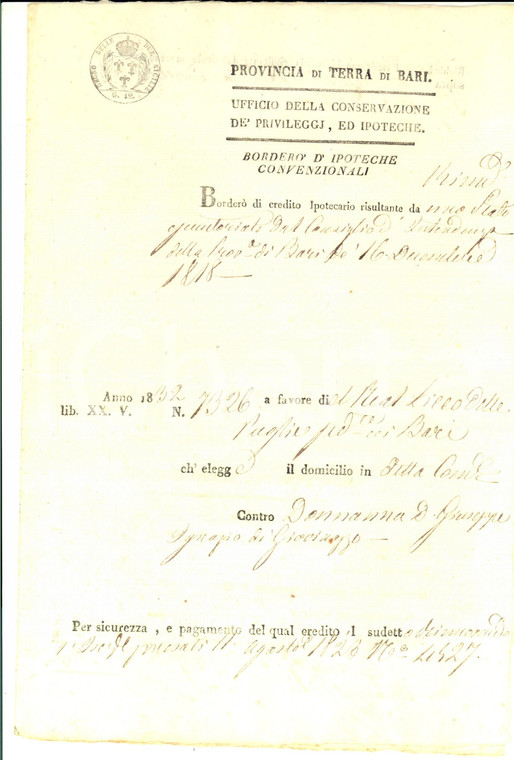 REGNO DELLE DUE SICILIE
G. 12.
PROVINCIA DI TERRA DI BARI.
UFFICIO DELLA CONSERVAZIONE
DE' PRIVILEGGJ, ED IPOTECHE.
BORDERO' D' IPOTECHE
CONVENZIONALI
Borderò di credito Ipotecario risultante da uno Stato
dal Consiglio d' Intendenza
della Prov.a di Bari de' 16 Decembre
1818
Anno 1832
lib. XX. V. N. 7326 a favore di el Real Liceo delle
Puglie in Bari
ch' elegge il domicilio in detta
Contro Donnanna D. Giuseppe
Ignazio di Giovinazzo
Per sicurezza, e pagamento del qual credito l sudett
Agosto 1823 N.o 4527.